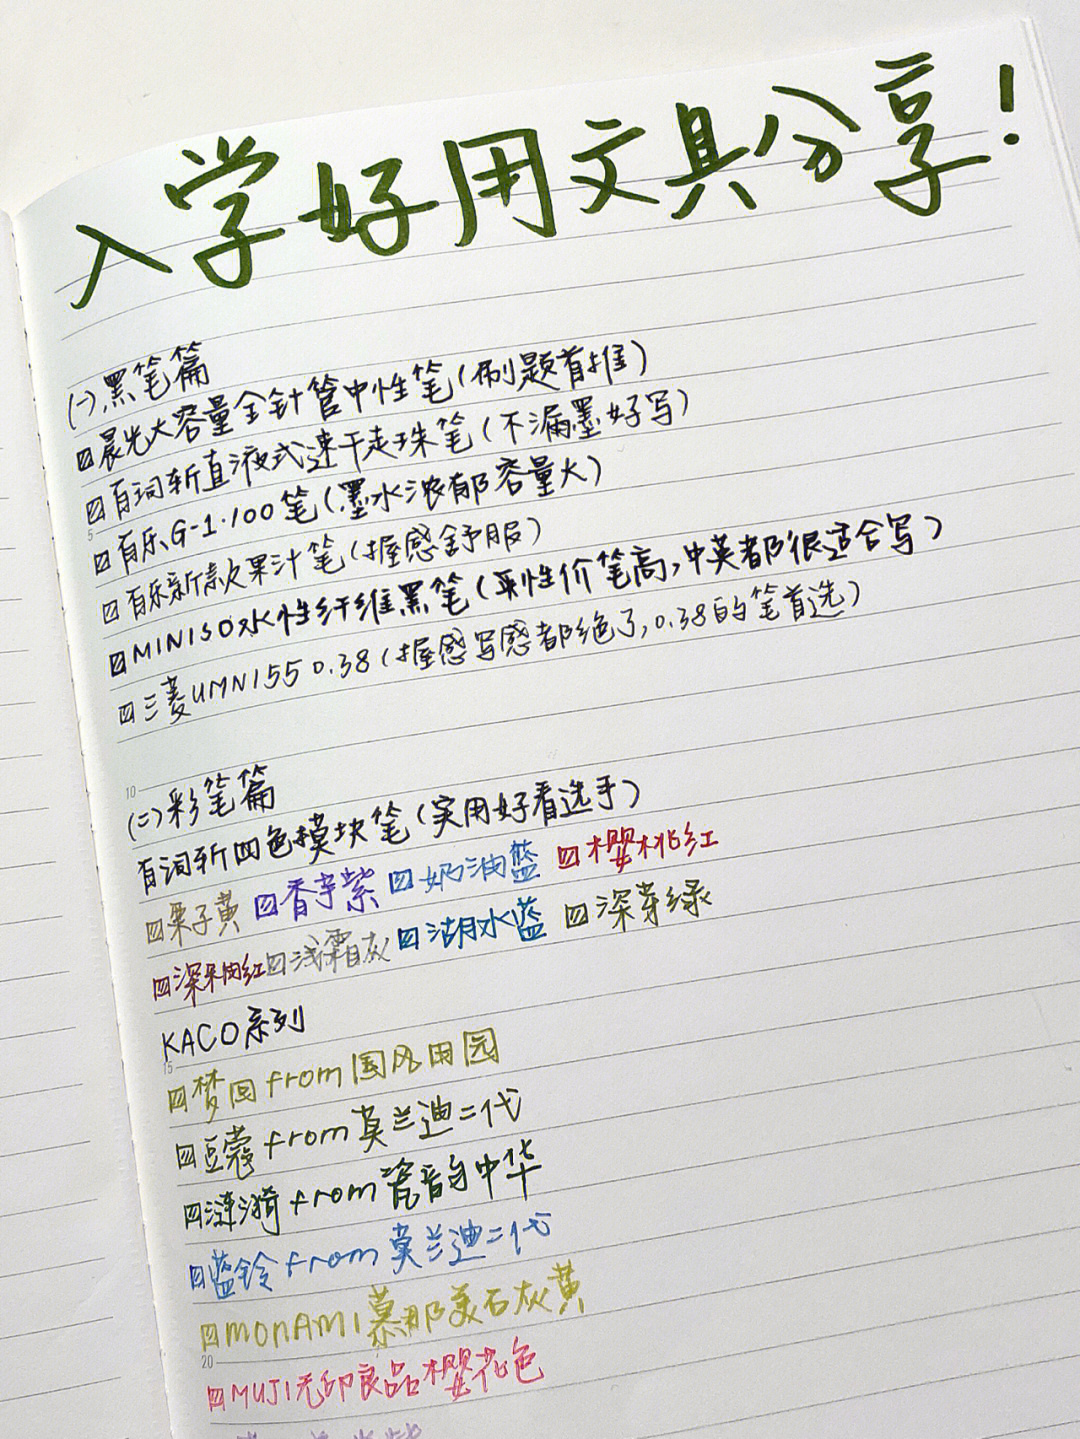 入学好用文具分享！
(一).黑笔篇
晨光大容量全针管中性笔(刷题首推)
白词新直液式速干走珠笔(不漏墨好写)
百乐G-1·100笔(墨水浓郁容量大)
百乐新款果汁笔(握感舒服)
MINISO水性纤维黑笔(平性价笔高,中英都很适合写)
三菱UMN155 0.38(握感写感都绝了,0.38的笔首选)
10
(二)彩笔篇
白词新四色模块笔(实用好看选手)
栗子黄 香芋紫 奶油蓝 樱桃红
深果肉红 浅霜灰 湖水蓝 深芽绿
KACO系列
15
梦回from国风田园
豆蔻from莫兰迪二代
涟漪from瓷韵中华
蓝铃from莫兰迪二代
MONAMI慕那美石灰黄
20
MUJI无印良品樱花色